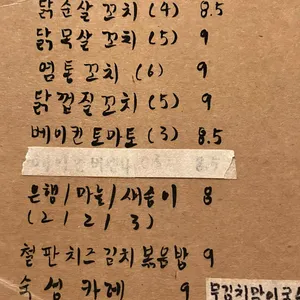 닭순살꼬치(4) 8.5
닭목살꼬치(5) 9
염통꼬치(6) 9
닭껍질꼬치(5) 9
베이컨토마토(3) 8.5
8.5
은행/마늘/새송이 8
(2/2/3)
철판치즈김치볶음밥 9
숙성카레 9
무김치말이국